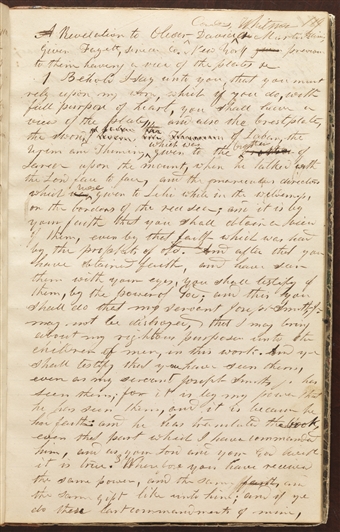 Code, Whitmer 119
A Revelation to Oliver, David & Martin Harris
Given Fayett, Seneca Co. New York previous
to them haveing a view of the plates &c
1 Behold I say unto you, that you must
rely upon my word, which if you do, with
full purpose of heart, you shall have a
view of the plates, and also the brestplate,
the sword of Laban, the
Urim and Thumim, which was given to the brother of
Jared upon the mount, when he talked with
the Lord face to face, and the marveelus directors
which was given to Lehi while in the wilderness,
on the borders of the red sea; and it is by
your faith that you shall obtain a view
of them, even by that faith which was had
by the prophets of old. And after that you
have obtained faith, and have seen
them with your eyes, you shall testify of
them, by the power of God; and this you
shall do that my servant Joseph Smith jr
may not be distroyed, that I may bring
about my righteous purposes unto the
children of men, in this work. And ye
shall testify that you have seen them,
even as my servant Joseph Smith, jr has
seen them; for it is by my power that
he has seen them, and it is because he
had faith: and he has translated the book,
even that part which I have commanded
him, and as your Lord and your God liveth
it is true. Wherefore you have received
the same power, and the same faith, and
the same gift like unto him; and if ye
do these last commandments of mine,